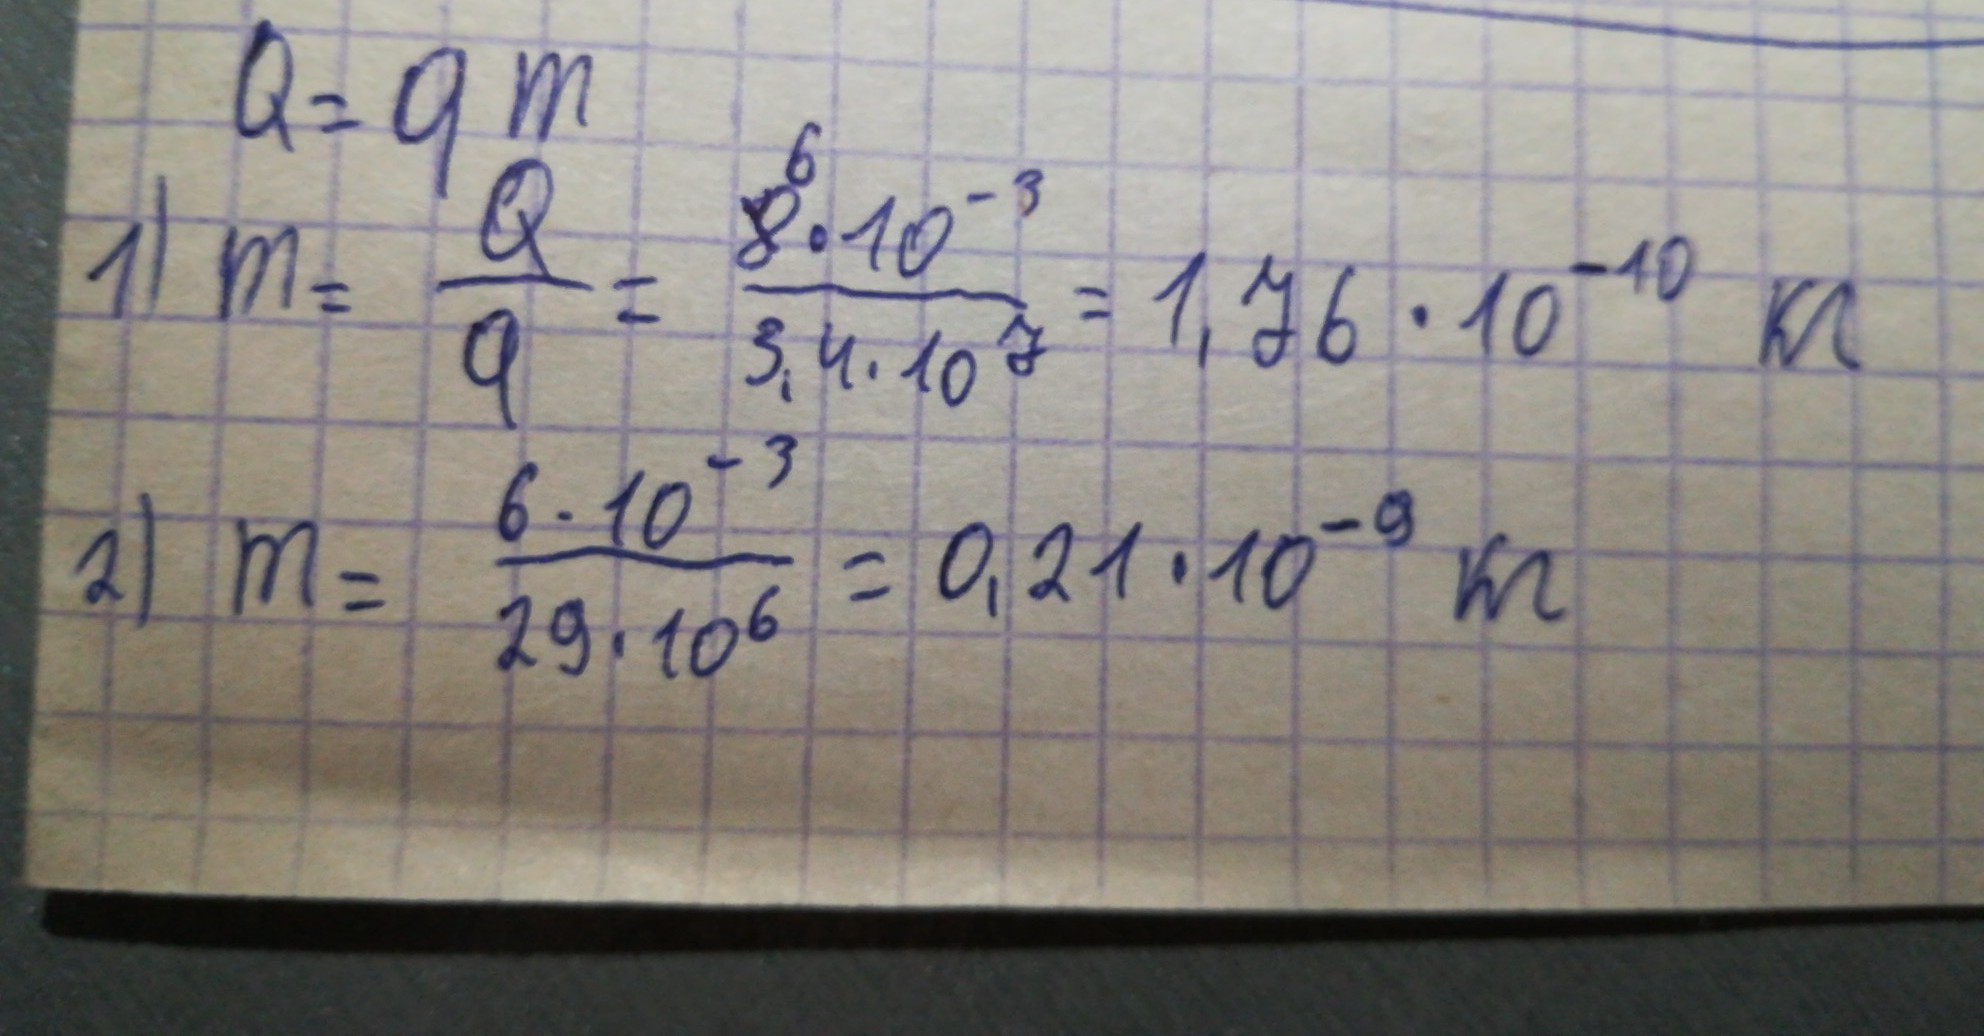 Q = q m
1) m = Q/q = 6·10⁻³/3,4·10⁷ = 1,76·10⁻¹⁰ кг
2) m = 6·10⁻³/29·10⁶ = 0,21·10⁻⁹ кг